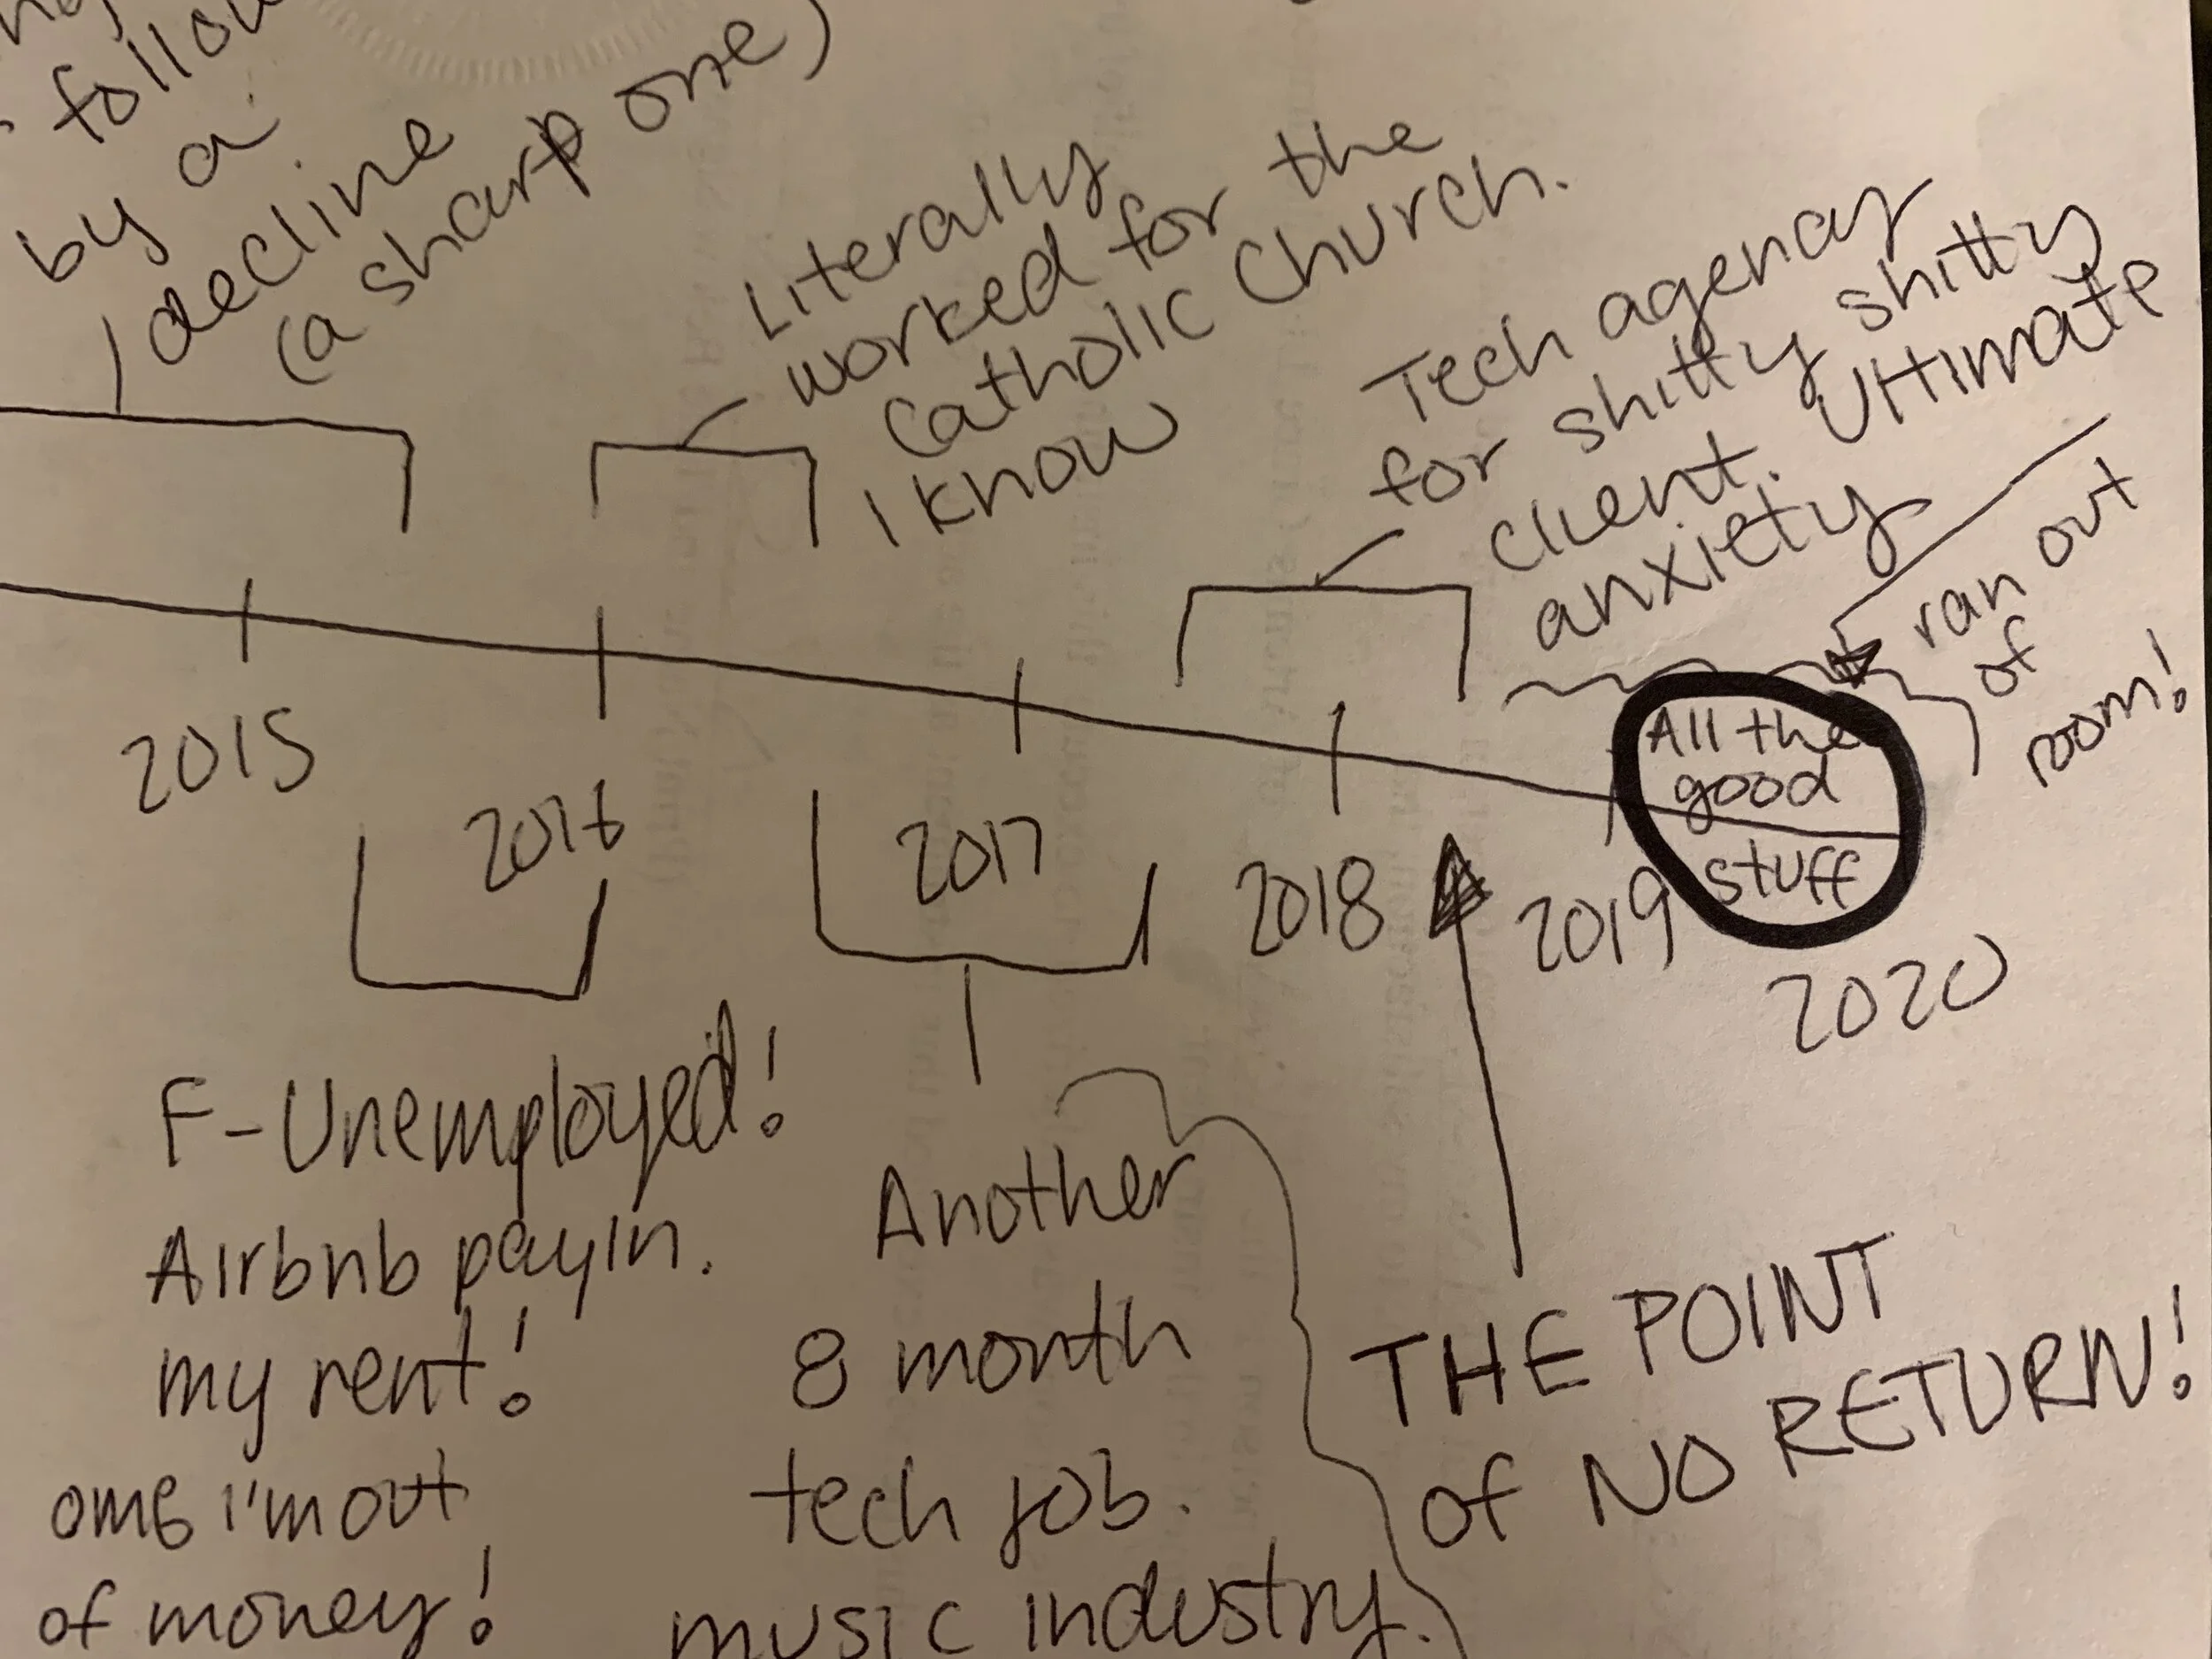 follow
by a
decline
(a sharp one)
Literally
worked for the
Catholic Church.
I know
Tech agency
for shitty shitty
client. Ultimate
anxiety
ran out
of
room!
All the
good
stuff
2015
2016
2017
2018
2019
2020
F-Unemployed!
Airbnb payin.
my rent!
omG i'm out
of money!
Another
8 month
tech job.
music industry.
THE POINT
of NO RETURN!